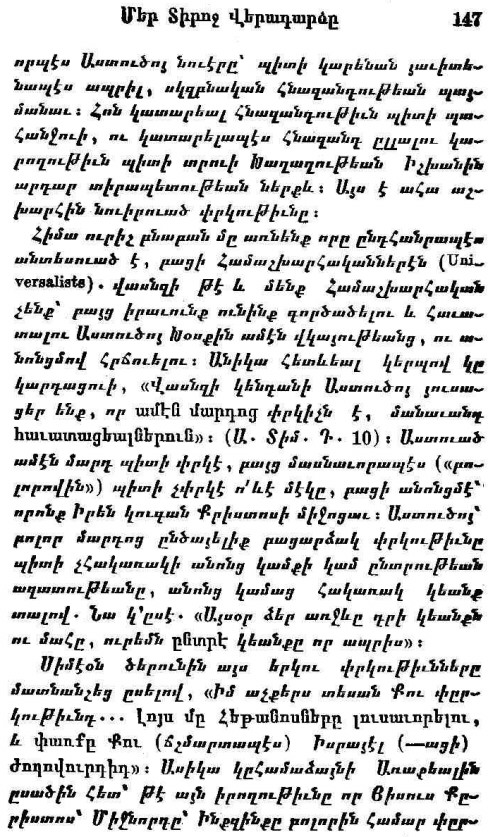 Մեր Տիրոջ Վերադարձը 147
որպէս Աստուծոյ նուէրը՝ պիտի կարենան յաւիտե-
նապէս ապրիլ, սկզբնական հնազանդութեան պայ-
մանաւ։ Հոն կատարեալ հնազանդութիւն պիտի պա-
հանջուի, ու կատարելապէս հնազանդ ըլլալու կա-
րողութիւն պիտի տրուի Խաղաղութեան Իշխանին
արդար տիրապետութեան ներքև։ Այս է ահա աշ-
խարհին նուիրուած փրկութիւնը։
Հիմա ուրիշ բնաբան մը առնենք որը ընդհանրապէս
անտեսուած է, բացի Համաշխարհականներէն (Uni-
versalists). վասնզի թէ և մենք Համաշխարհական
չենք՝ բայց իրաւունք ունինք գործածելու և հաւա-
տալու Աստուծոյ Խօսքին ամէն վկայութեանց, ու ա-
նոնցմով հրճուելու։ Անիկա հետևեալ կերպով կը
կարդացուի, «Վասնզի կենդանի Աստուծոյ յուսա-
ցեր ենք, որ ամէն մարդոց փրկիչն է, մանաւանդ
հաւատացեալներուն»։ (Ա. Տիմ. Դ. 10)։ Աստուած
ամէն մարդ պիտի փրկէ, բայց մասնաւորապէս («բո-
լորովին») պիտի չփրկէ ո՛ևէ մէկը, բացի անոնցմէ՝
որոնք Իրեն կուգան Քրիստոսի միջոցաւ։ Աստուծոյ՝
բոլոր մարդոց ընծայելիք բացարձակ փրկութիւնը
պիտի չհակառակի անոնց կամքի կամ ընտրութեան
ազատութեանը, անոնց կամաց հակառակ կեանք
տալով. Նա կ՚ըսէ. «Այսօր ձեր առջևը դրի կեանքն
ու մահը, ուրեմն ընտրէ կեանքը որ ապրիս»։
Սիմէօն ծերունին այս երկու փրկութիւնները
մատնանշեց ըսելով, «Իմ աչքերս տեսան Քու փըր-
կութիւնդ... Լոյս մը Հեթանոսները լուսաւորելու,
և փառքը Քու (ճշմարտապէս) Իսրայէլ (—ացի)
ժողովուրդիդ»։ Ասիկա կըհամաձայնի Առաքեալին
ըսածին հետ՝ թէ այն իրողութիւնը որ Յիսուս Քը-
րիստոս՝ Միջնորդը՝ Ինքզինքը բոլորին համար փըր-